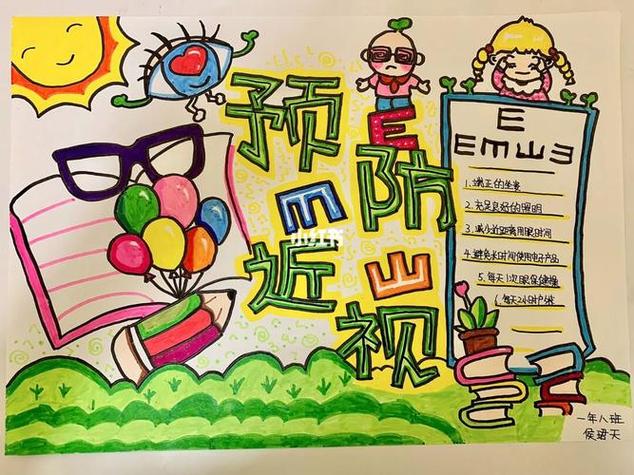 预防
近视
E
E
M
Ш
小红书
E
E M Ш Ǝ
1.端正的坐姿
2.充足良好的照明
3.减少近距离用眼时间
4.避免长时间使用电子产品
5.每天1次眼保健操
6.每天2小时户外
一年八班